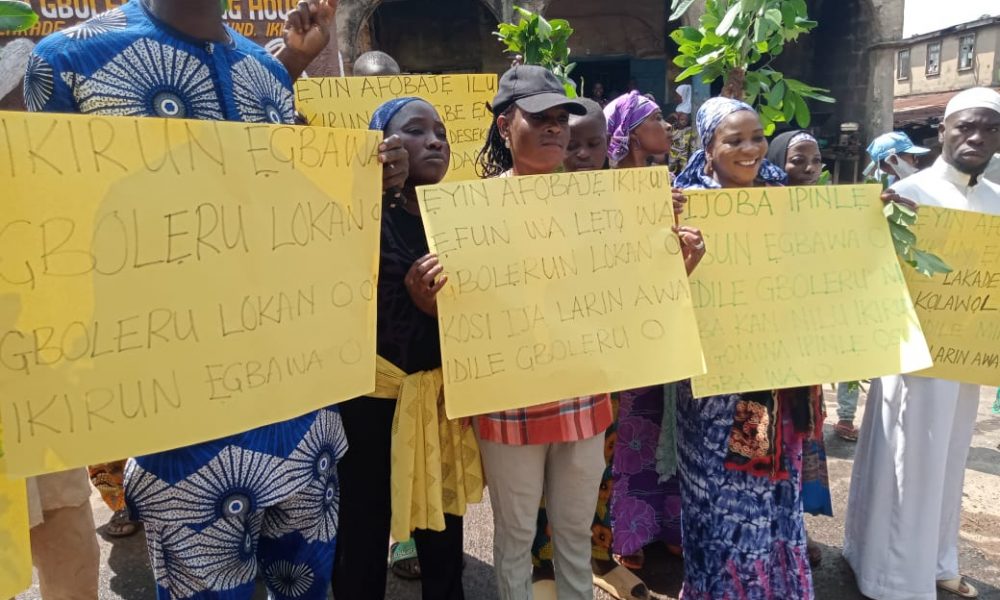 NG HOUS
IKIRUN ẸGBAWA
GBOLERU LOKAN O
GBOLERU LOKAN O O
IKIRUN ẸGBAWA O
ẸYIN AFOBAJẸ ILU
ẸYIN AFỌBAJE IKIRUN
ẸFUN WA LẸTỌ WA
GBOLẸRUN LOKAN O
KOSI IJA LARIN AWA
IDILE GBOLERU O
IJOBA IPINLẸ
SUN ẸGBAWA O
IDILE GBOLERU NI
BA KAN NILU IKIRU
GOMINA IPINLẸ
ẸGBA WA O
LAKADE
KOLAWOL
LARIN AWA